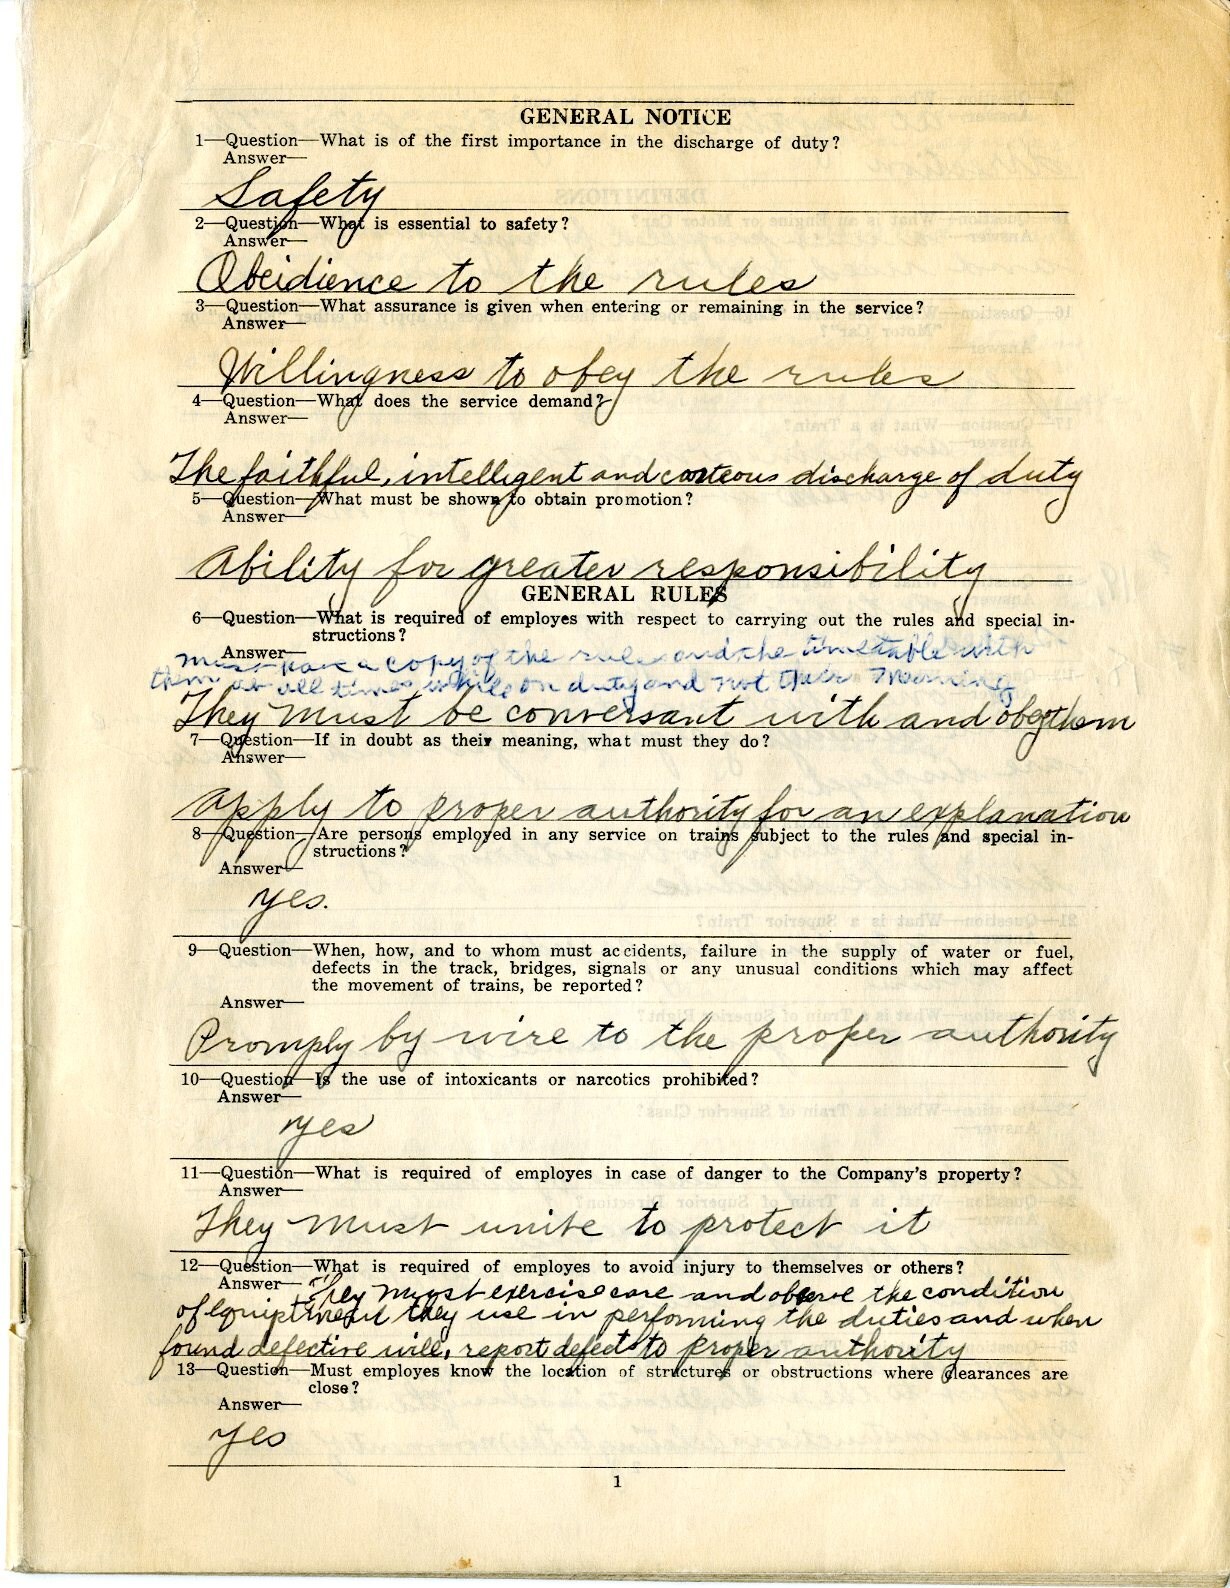 GENERAL NOTICE
1—Question—What is of the first importance in the discharge of duty?
Answer—
Safety
2—Question—What is essential to safety?
Answer—
Obeidience to the rules
3—Question—What assurance is given when entering or remaining in the service?
Answer—
Willingness to obey the rules
4—Question—What does the service demand?
Answer—
The faithful, intelligent and corteous discharge of duty
5—Question—What must be shown to obtain promotion?
Answer—
Ability for greater responsibility
GENERAL RULES
6—Question—What is required of employes with respect to carrying out the rules and special in-
structions?
Answer—
must have a copy of the rules and the timetable with
them at all times while on duty and not their meaning
They must be conversant with and obey them
7—Question—If in doubt as their meaning, what must they do?
Answer—
Apply to proper authority for an explanation
8—Question—Are persons employed in any service on trains subject to the rules and special in-
structions?
Answer—
yes.
9—Question—When, how, and to whom must accidents, failure in the supply of water or fuel,
defects in the track, bridges, signals or any unusual conditions which may affect
the movement of trains, be reported?
Answer—
Promply by wire to the proper authority
10—Question—Is the use of intoxicants or narcotics prohibited?
Answer—
yes
11—Question—What is required of employes in case of danger to the Company's property?
Answer—
They must unite to protect it
12—Question—What is required of employes to avoid injury to themselves or others?
Answer— They must exercise care and observe the condition
of equiptment they use in performing the duties and when
found defective will, report defect to proper authority
13—Question—Must employes know the location of structures or obstructions where clearances are
close?
Answer—
yes
1